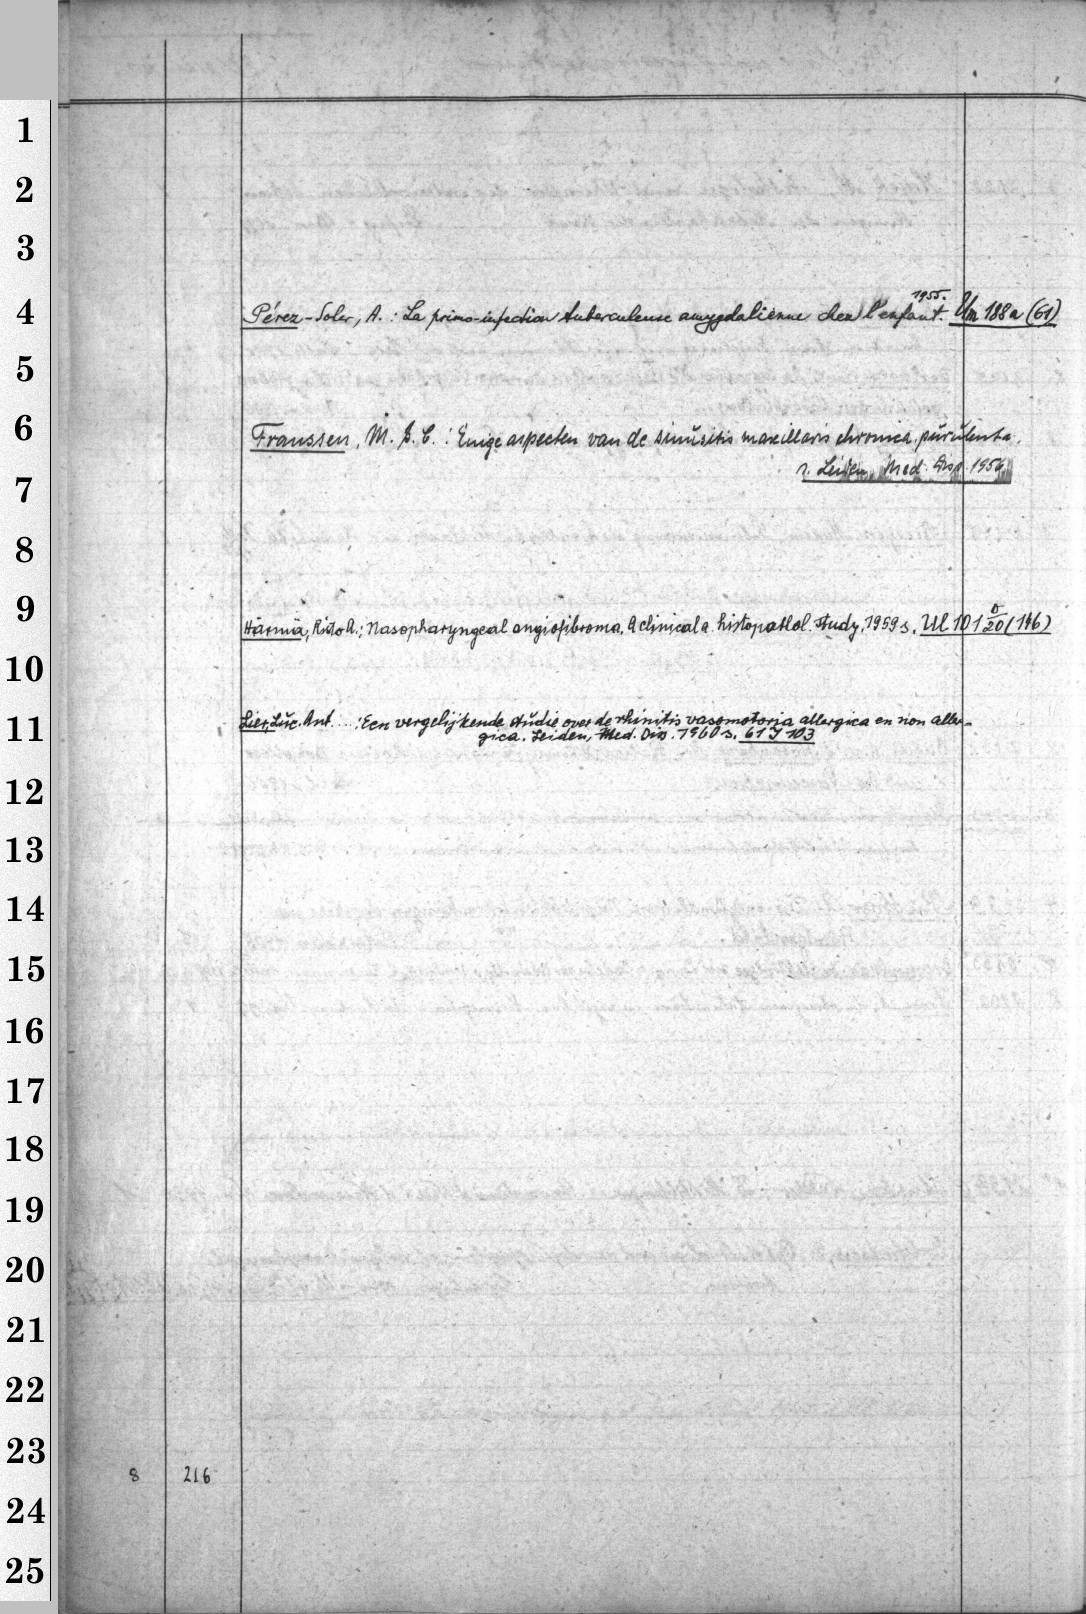 1
2
3
4
Pérez-Soler, A. : La primo-infection tuberculeuse amygdalienne chez l'enfant. 1955. Um 188a (61)
5
6
Franssen, M. G. C. : Enige aspecten van de sinusitis maxillaris chronica purulenta.
s. Leiden Med. Diss. 1956
7
8
9
Härmä, Risto A.; Nasopharyngeal angiofibroma. A clinical a. histopathol. study, 1959 s. Ul 101 D/20 (146)
10
11
Lier, Luc. Ant. ... : Een vergelijkende studie over de rhinitis vasomotoria allergica en non aller-
gica. Leiden, Med. Dis. 1960 s. 61 J 103
12
13
14
15
16
17
18
19
20
21
22
23
8 216
24
25